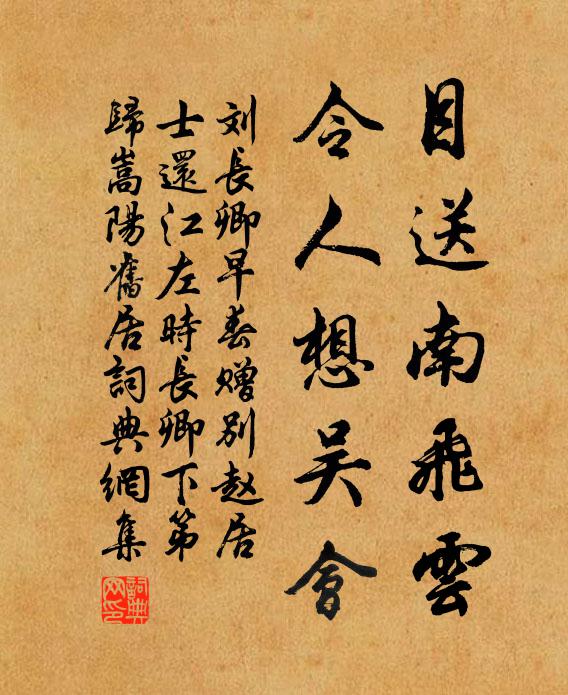 目送南飛雲
令人想吴會
刘長卿早春赠别赵居
士還江左時長卿下第
歸嵩陽舊居詞典網集
詞典网印